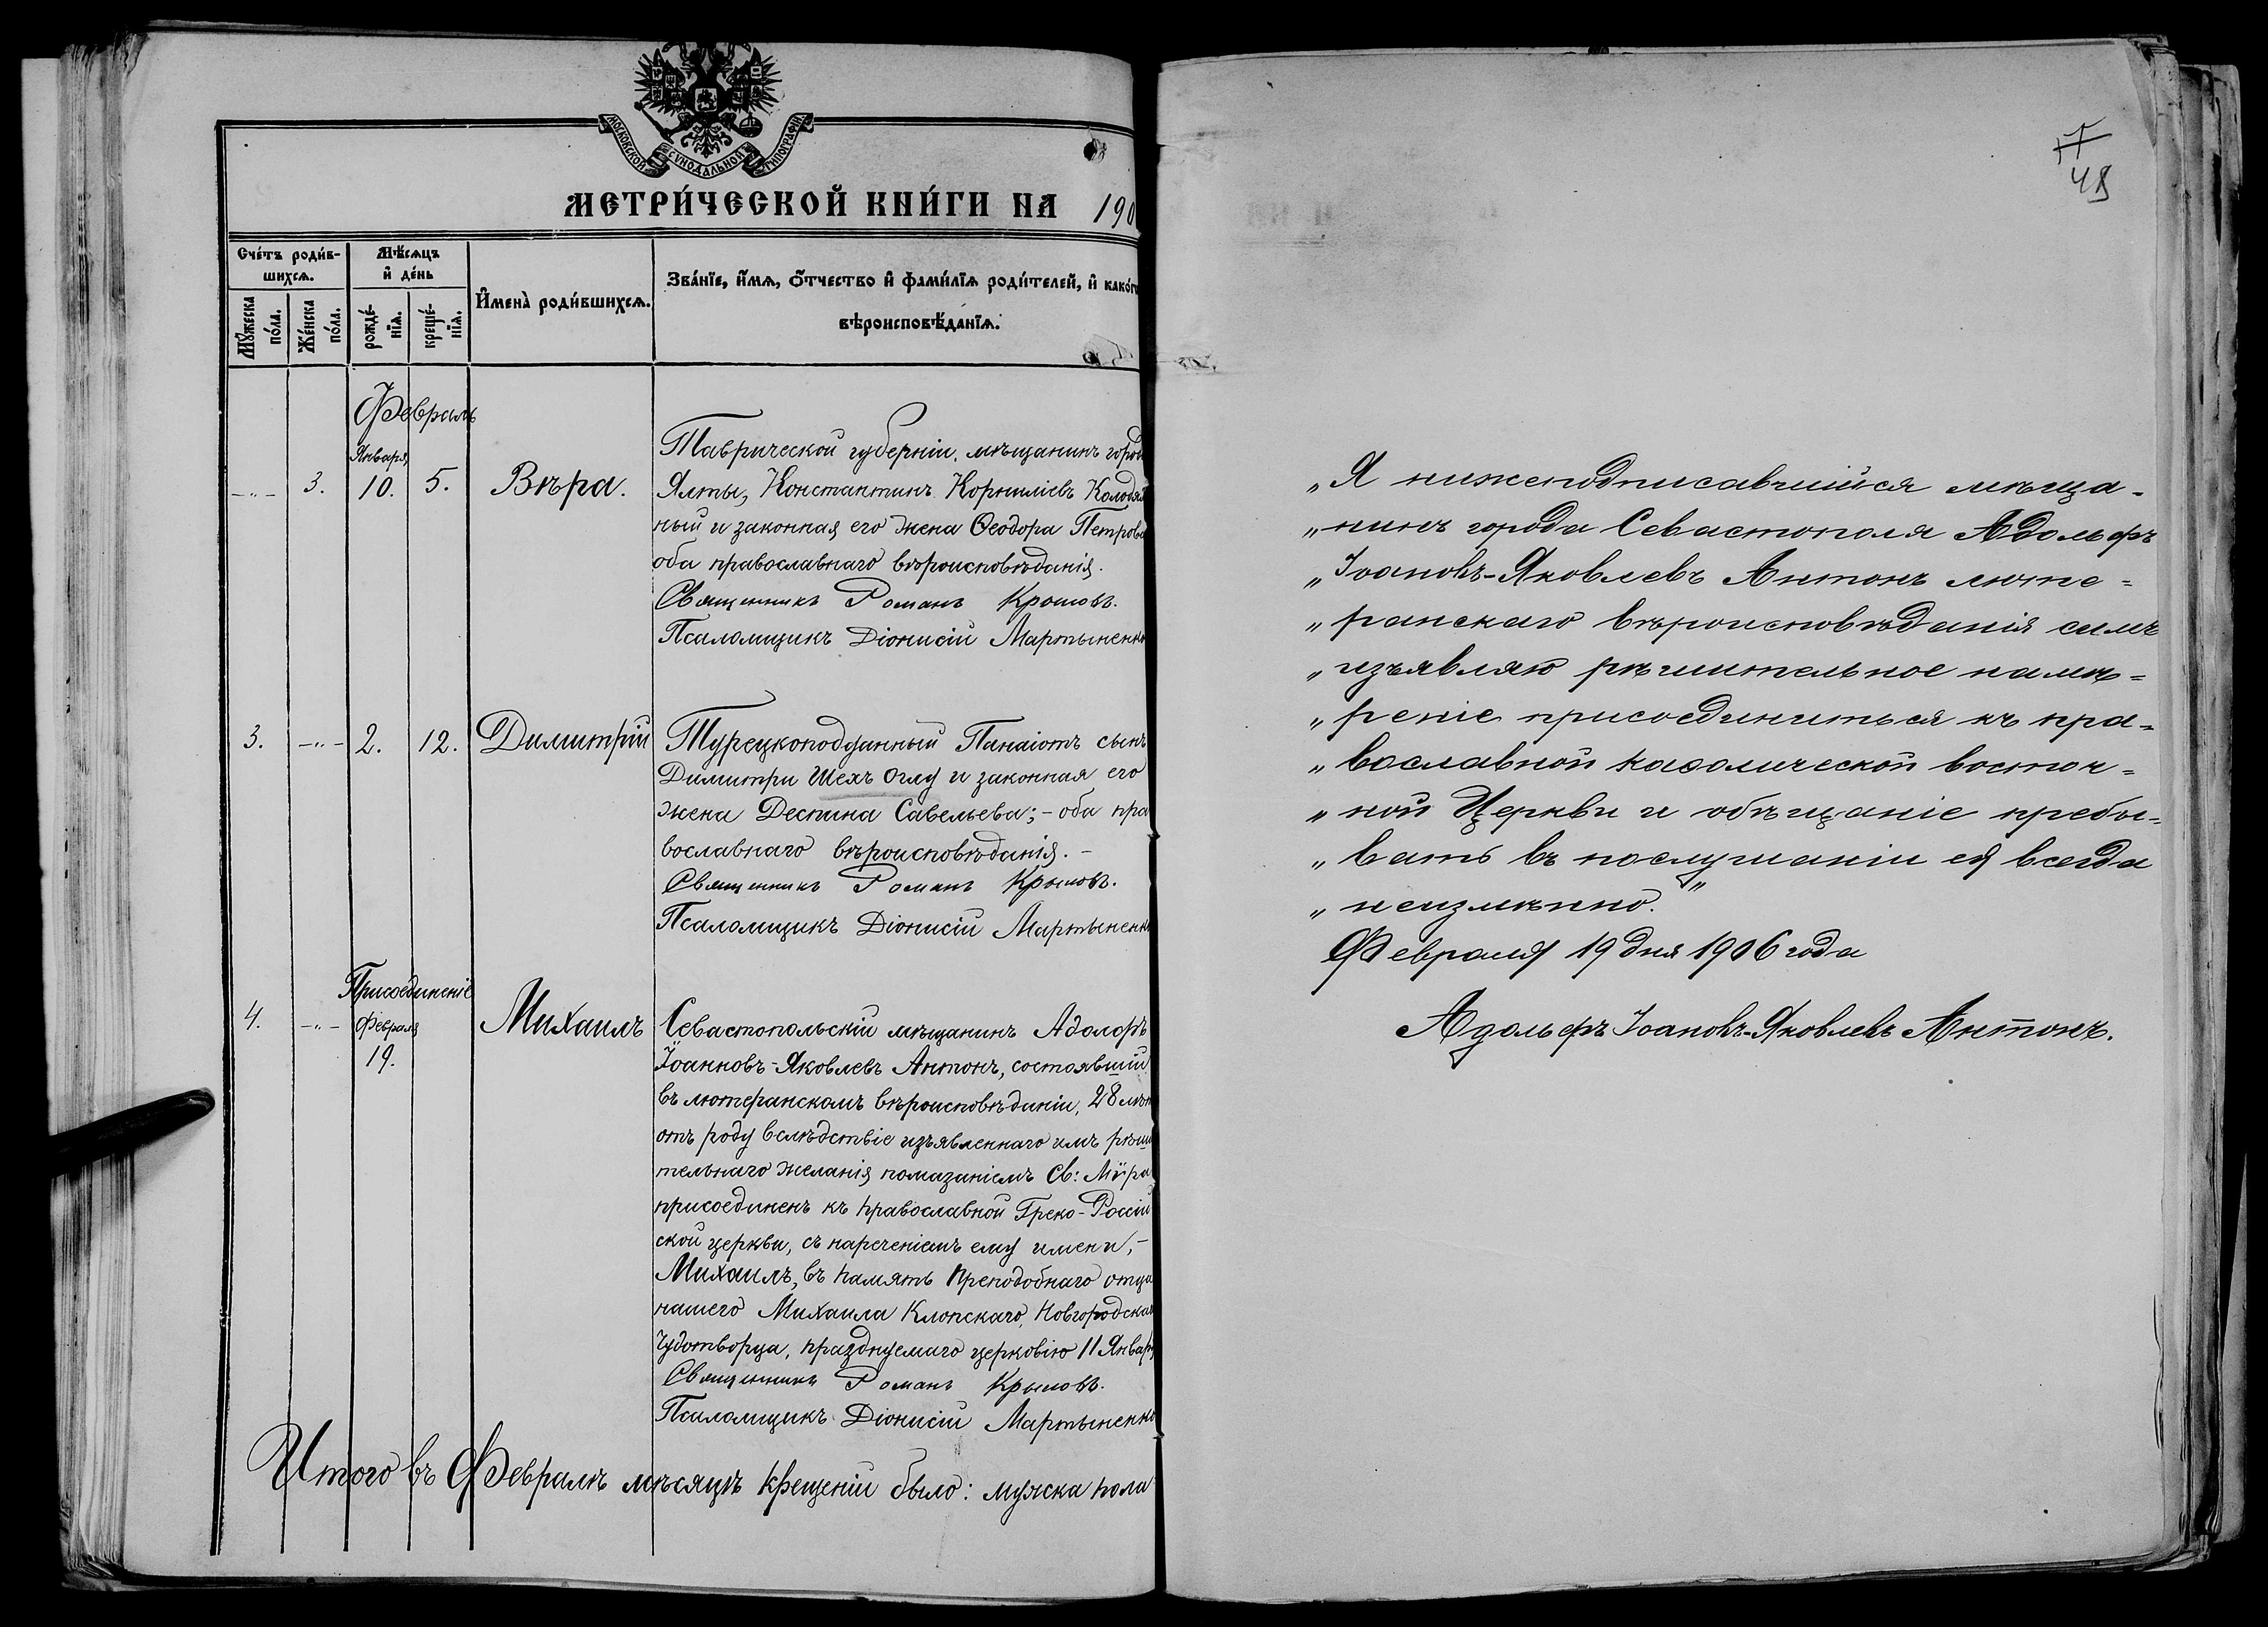 МОСКОВСКОЙ СѴНОДАЛЬНОЙ ТИПОГРАФІИ
МЕТРИ́ЧЕСКОЙ КНИ́ГИ НА 190
Сче́тъ роди́в-
шихсѧ.
Мꙋ́жеска
по́ла.
Же́нска
по́ла.
Мѣ́сѧцъ
и҆ де́нь
рожде́-
нїѧ.
креще́-
нїѧ.
И҆мена̀ роди́вшихсѧ.
Зва́нїе, и҆́мѧ, ѻ҆́тчество и҆ фами́лїѧ роди́телей, и҆ како́гѡ
вѣроисповѣ́данїѧ.
Февраль
-"- 3. Января 10. 5. Вѣра.
Таврической губерніи, мѣщанинъ города
Ялты, Константинъ Корниліевъ Колодяж
ный и законная его жена Ѳеодора Петрова
оба православнаго вѣроисповѣданія.
Священникъ Романъ Крыловъ.
Псаломщикъ Діонисій Мартыненко
3. -"- 2. 12. Димитрій
Турецкоподданный Панаіотъ сынъ
Димитри Шехъ Оглу и законная его
жена Деспина Савельева; - оба пра
вославнаго вѣроисповѣданія. -
Священникъ Романъ Крыловъ.
Псаломщикъ Діонисій Мартыненко
Присоединеніе
4. -"- Февраля 19. Михаилъ
Севастопольскій мѣщанинъ Адольфъ
Іоанновъ-Яковлевъ Антонъ, состоявшій
въ лютеранскомъ вѣроисповѣданіи, 28 лѣтъ
отъ роду вслѣдствіе изъявленнаго имъ рѣши
тельнаго желанія помазаніемъ Св: Мѵра
присоединенъ къ православной Греко-Россій
ской церкви, съ нареченіемъ ему имени, -
Михаилъ, въ память Преподобнаго отца
нашего Михаила Клопскаго, Новгородскаго
Чудотворца, празднуемаго церковію 11 Января
Священникъ Романъ Крыловъ.
Псаломщикъ Діонисій Мартыненко
Итого въ Февралѣ мѣсяцѣ крещеній было: мужска пола
17
48
„Я нижеподписавшійся мѣща-
„нинъ города Севастополя Адольфъ
„Іоановъ-Яковлевъ Антонъ люте=
„ранскаго вѣроисповѣданія симъ
„изъявляю рѣшительное намѣ=
„реніе присоединиться къ пра=
„вославной каѳолической восточ=
„ной Церкви и обѣщаніе пребы=
„вать въ послушаніи ея всегда
„неизмѣнно."
Февраля 19 дня 1906 года
Адольфъ Іоановъ-Яковлевъ Антонъ.